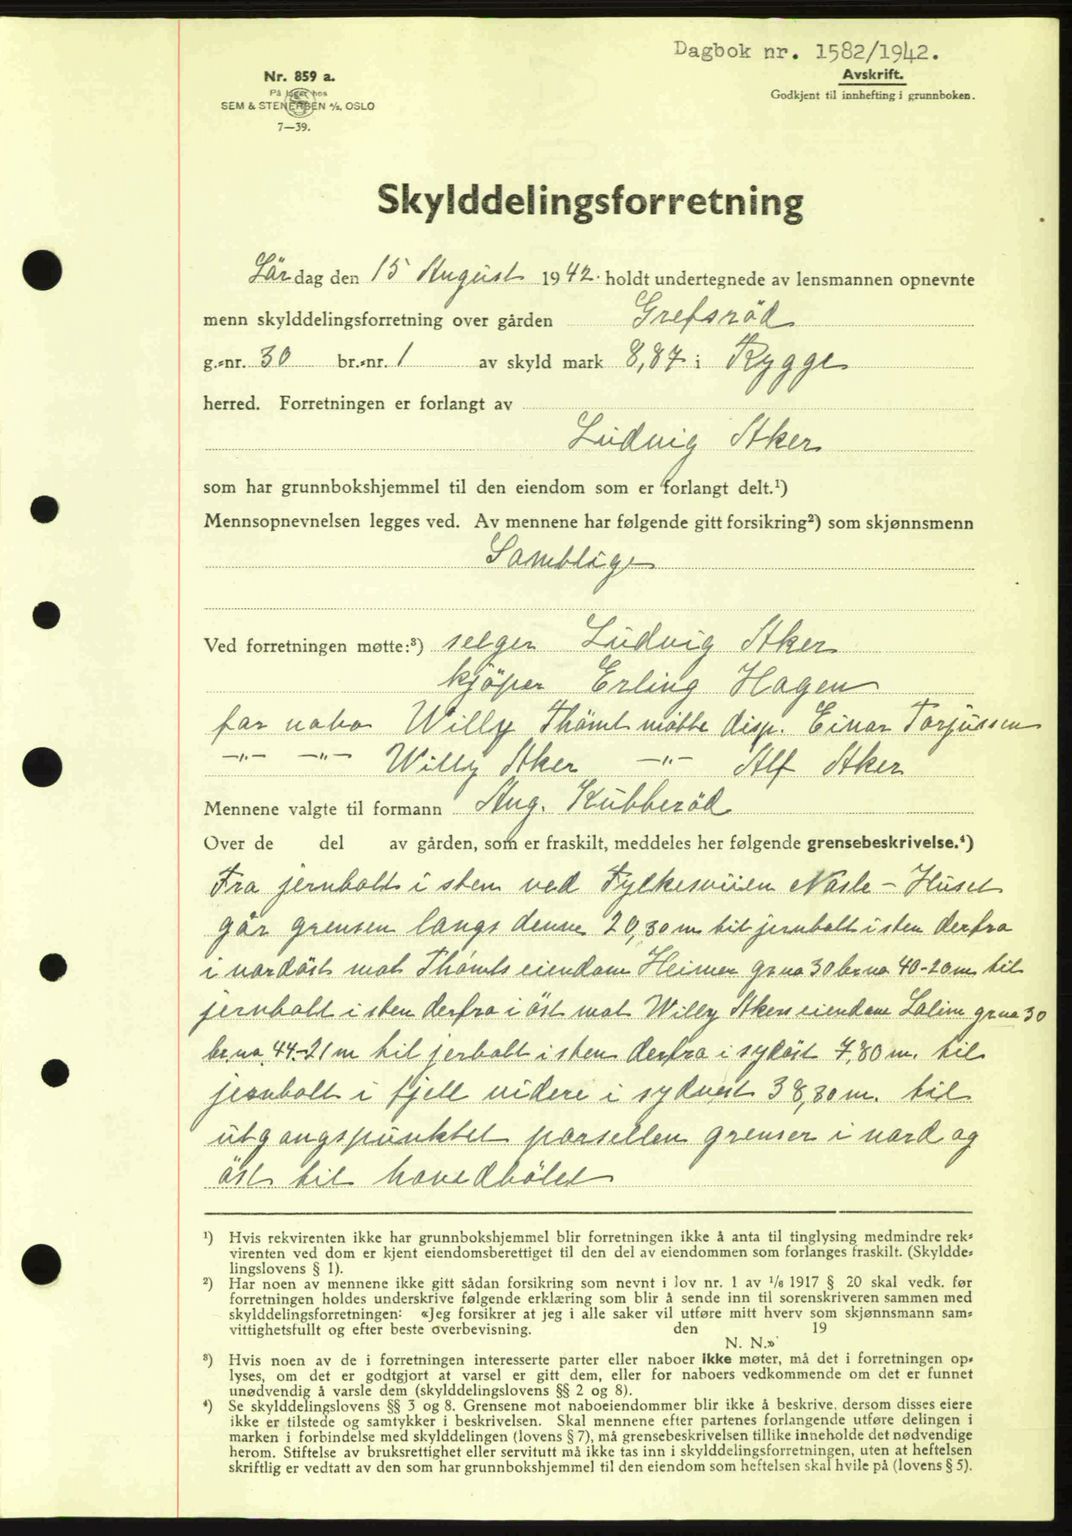 Dagbok nr. 1582/1942.
Avskrift.
Godkjent til innhefting i grunnboken.
Nr. 859 a.
På lager hos
SEM & STENERSEN A/S. OSLO
7—39.
Skylddelingsforretning
Lördag den 15 August 1942. holdt undertegnede av lensmannen opnevnte
menn skylddelingsforretning over gården Grefsröd
g.-nr. 30 br.-nr. 1 av skyld mark 8,87 i Rygge
herred. Forretningen er forlangt av
Ludvig Aker
som har grunnbokshjemmel til den eiendom som er forlangt delt.¹)
Mennsopnevnelsen legges ved. Av mennene har følgende gitt forsikring²) som skjønnsmenn
Samtlige
Ved forretningen møtte:³) selger Ludvig Aker
kjöper Erling Hagen
for nabo Willy Thömt møtte disp. Einar Torjussen
—"— —"— Willy Aker —"— Alf Aker
Mennene valgte til formann Aug. Kubberöd
Over de del av gården, som er fraskilt, meddeles her følgende grensebeskrivelse.⁴)
Fra jernbolt i sten ved Fylkesveien Nasle-Huset
går grensen langs denne 20,30 m til jernbolt i sten derfra
i nordöst mot Thömts eiendom Heimen gr no 30 br no 40-20 m til
jernbolt i sten derfra i öst mot Willy Akers eiendom gr no 30
br no 44-21 m til jerbolt i sten derfra i sydöst 7,80 m. til
jernbolt i fjell videre i sydvest 38,80 m. til
utgangspunktet parsellen grenser i nord og
öst til hovedbölet
¹) Hvis rekvirenten ikke har grunnbokshjemmel blir forretningen ikke å anta til tinglysing medmindre rek-
virenten ved dom er kjent eiendomsberettiget til den del av eiendommen som forlanges fraskilt. (Skyldde-
lingslovens § 1).
²) Har noen av mennene ikke gitt sådan forsikring som nevnt i lov nr. 1 av 1/6 1917 § 20 skal vedk. før
forretningen holdes underskrive følgende erklæring som blir å sende inn til sorenskriveren sammen med
skylddelingsforretningen: «Jeg forsikrer at jeg i alle saker vil utføre mitt hverv som skjønnsmann sam-
vittighetsfullt og efter beste overbevisning. den 19
N. N.»
³) Hvis noen av de i forretningen interesserte parter eller naboer ikke møter, må det i forretningen op-
lyses, om det er godtgjort at varsel er gitt dem, eller for naboers vedkommende om det er funnet
unødvendig å varsle dem (skylddelingslovens §§ 2 og 8).
⁴) Se skylddelingslovens §§ 3 og 8. Grensene mot naboeiendommer blir ikke å beskrive, dersom disses eiere
ikke er tilstede og samtykker i beskrivelsen. Skal mennene efter partenes forlangende utføre delingen i
marken i forbindelse med skylddelingen (lovens § 7), må grensebeskrivelsen tillike inneholde det nødvendige
herom. Stiftelse av bruksrettighet eller servitutt må ikke tas inn i skylddelingsforretningen, uten at heftelsen
skriftlig er vedtatt av den som har grunnbokshjemmel til den eiendom som heftelsen skal hvile på (lovens § 5).